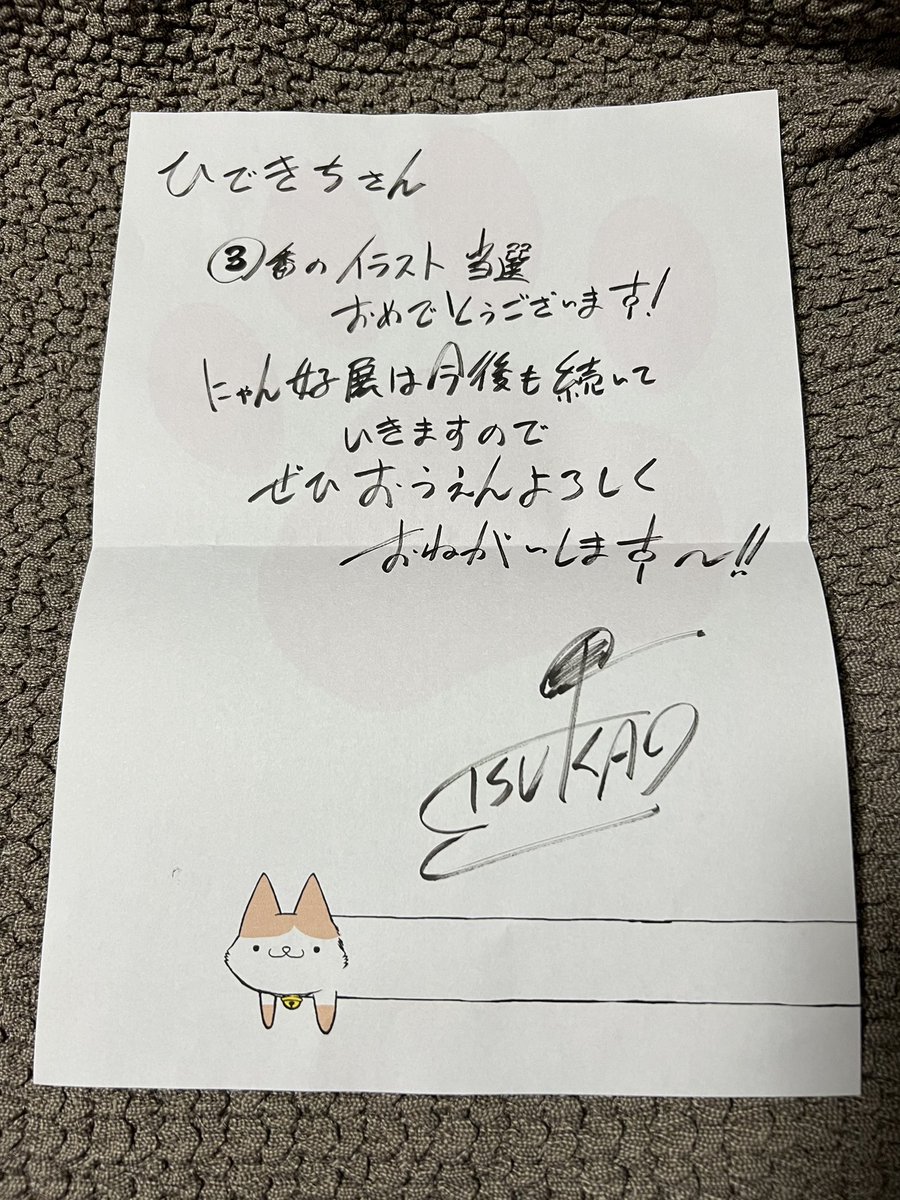 ひできちさん
③番のイラスト当選
おめでとうございます!
にゃん好展は今後も続いて
いきますので
ぜひおうえんよろしく
おねがいします～!!